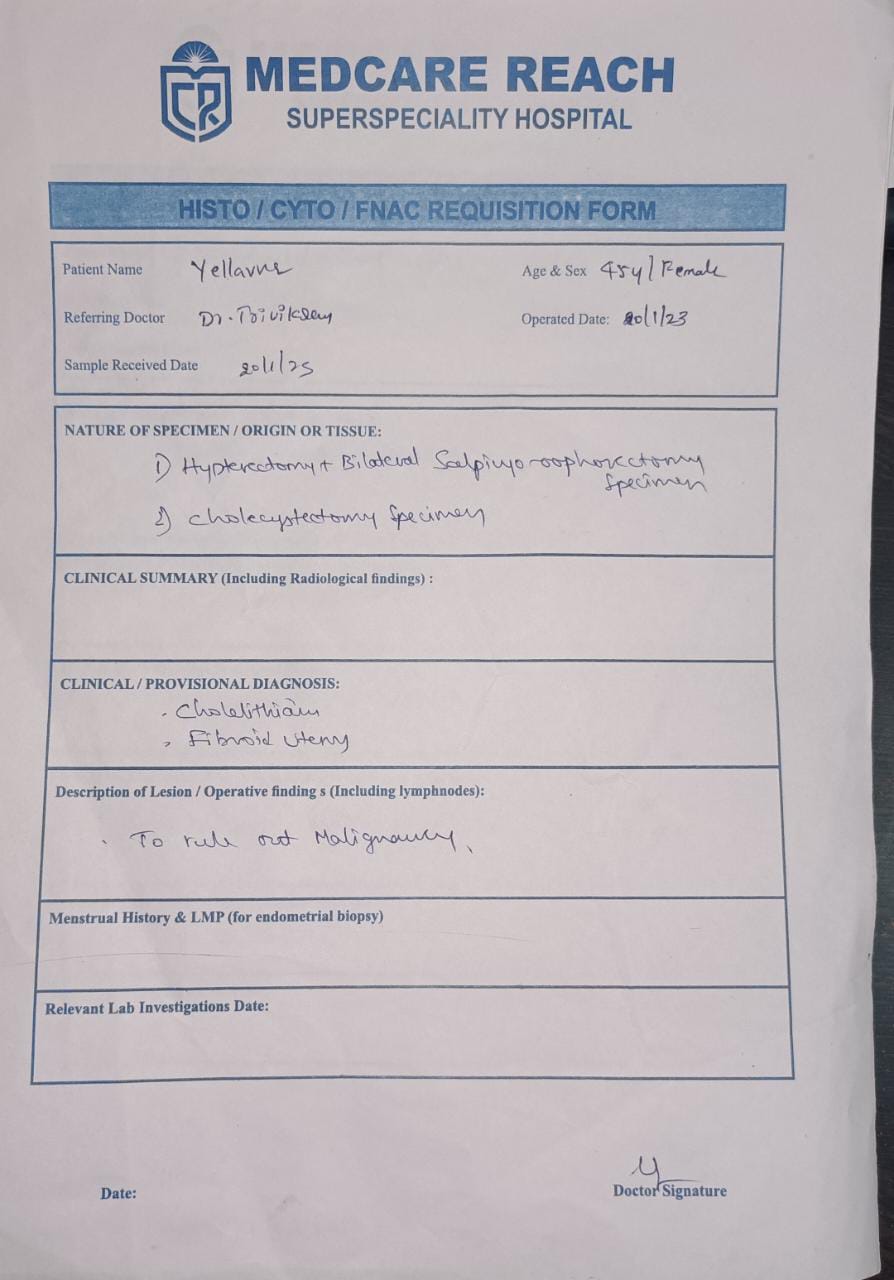 CR
MEDCARE REACH
SUPERSPECIALITY HOSPITAL
HISTO / CYTO / FNAC REQUISITION FORM
Patient Name
Age & Sex 45y / Female
Referring Doctor Dr.
Operated Date: 20/1/23
Sample Received Date 20/1/25
NATURE OF SPECIMEN / ORIGIN OR TISSUE:
1) Hysterectomy + Bilateral Salpingo-oophorectomy
Specimen
2) Cholecystectomy Specimen
CLINICAL SUMMARY (Including Radiological findings) :
CLINICAL / PROVISIONAL DIAGNOSIS:
. Cholelithiasis
. Fibroid Uterus
Description of Lesion / Operative finding s (Including lymphnodes):
. To rule out Malignancy.
Menstrual History & LMP (for endometrial biopsy)
Relevant Lab Investigations Date:
Date:
Doctor Signature